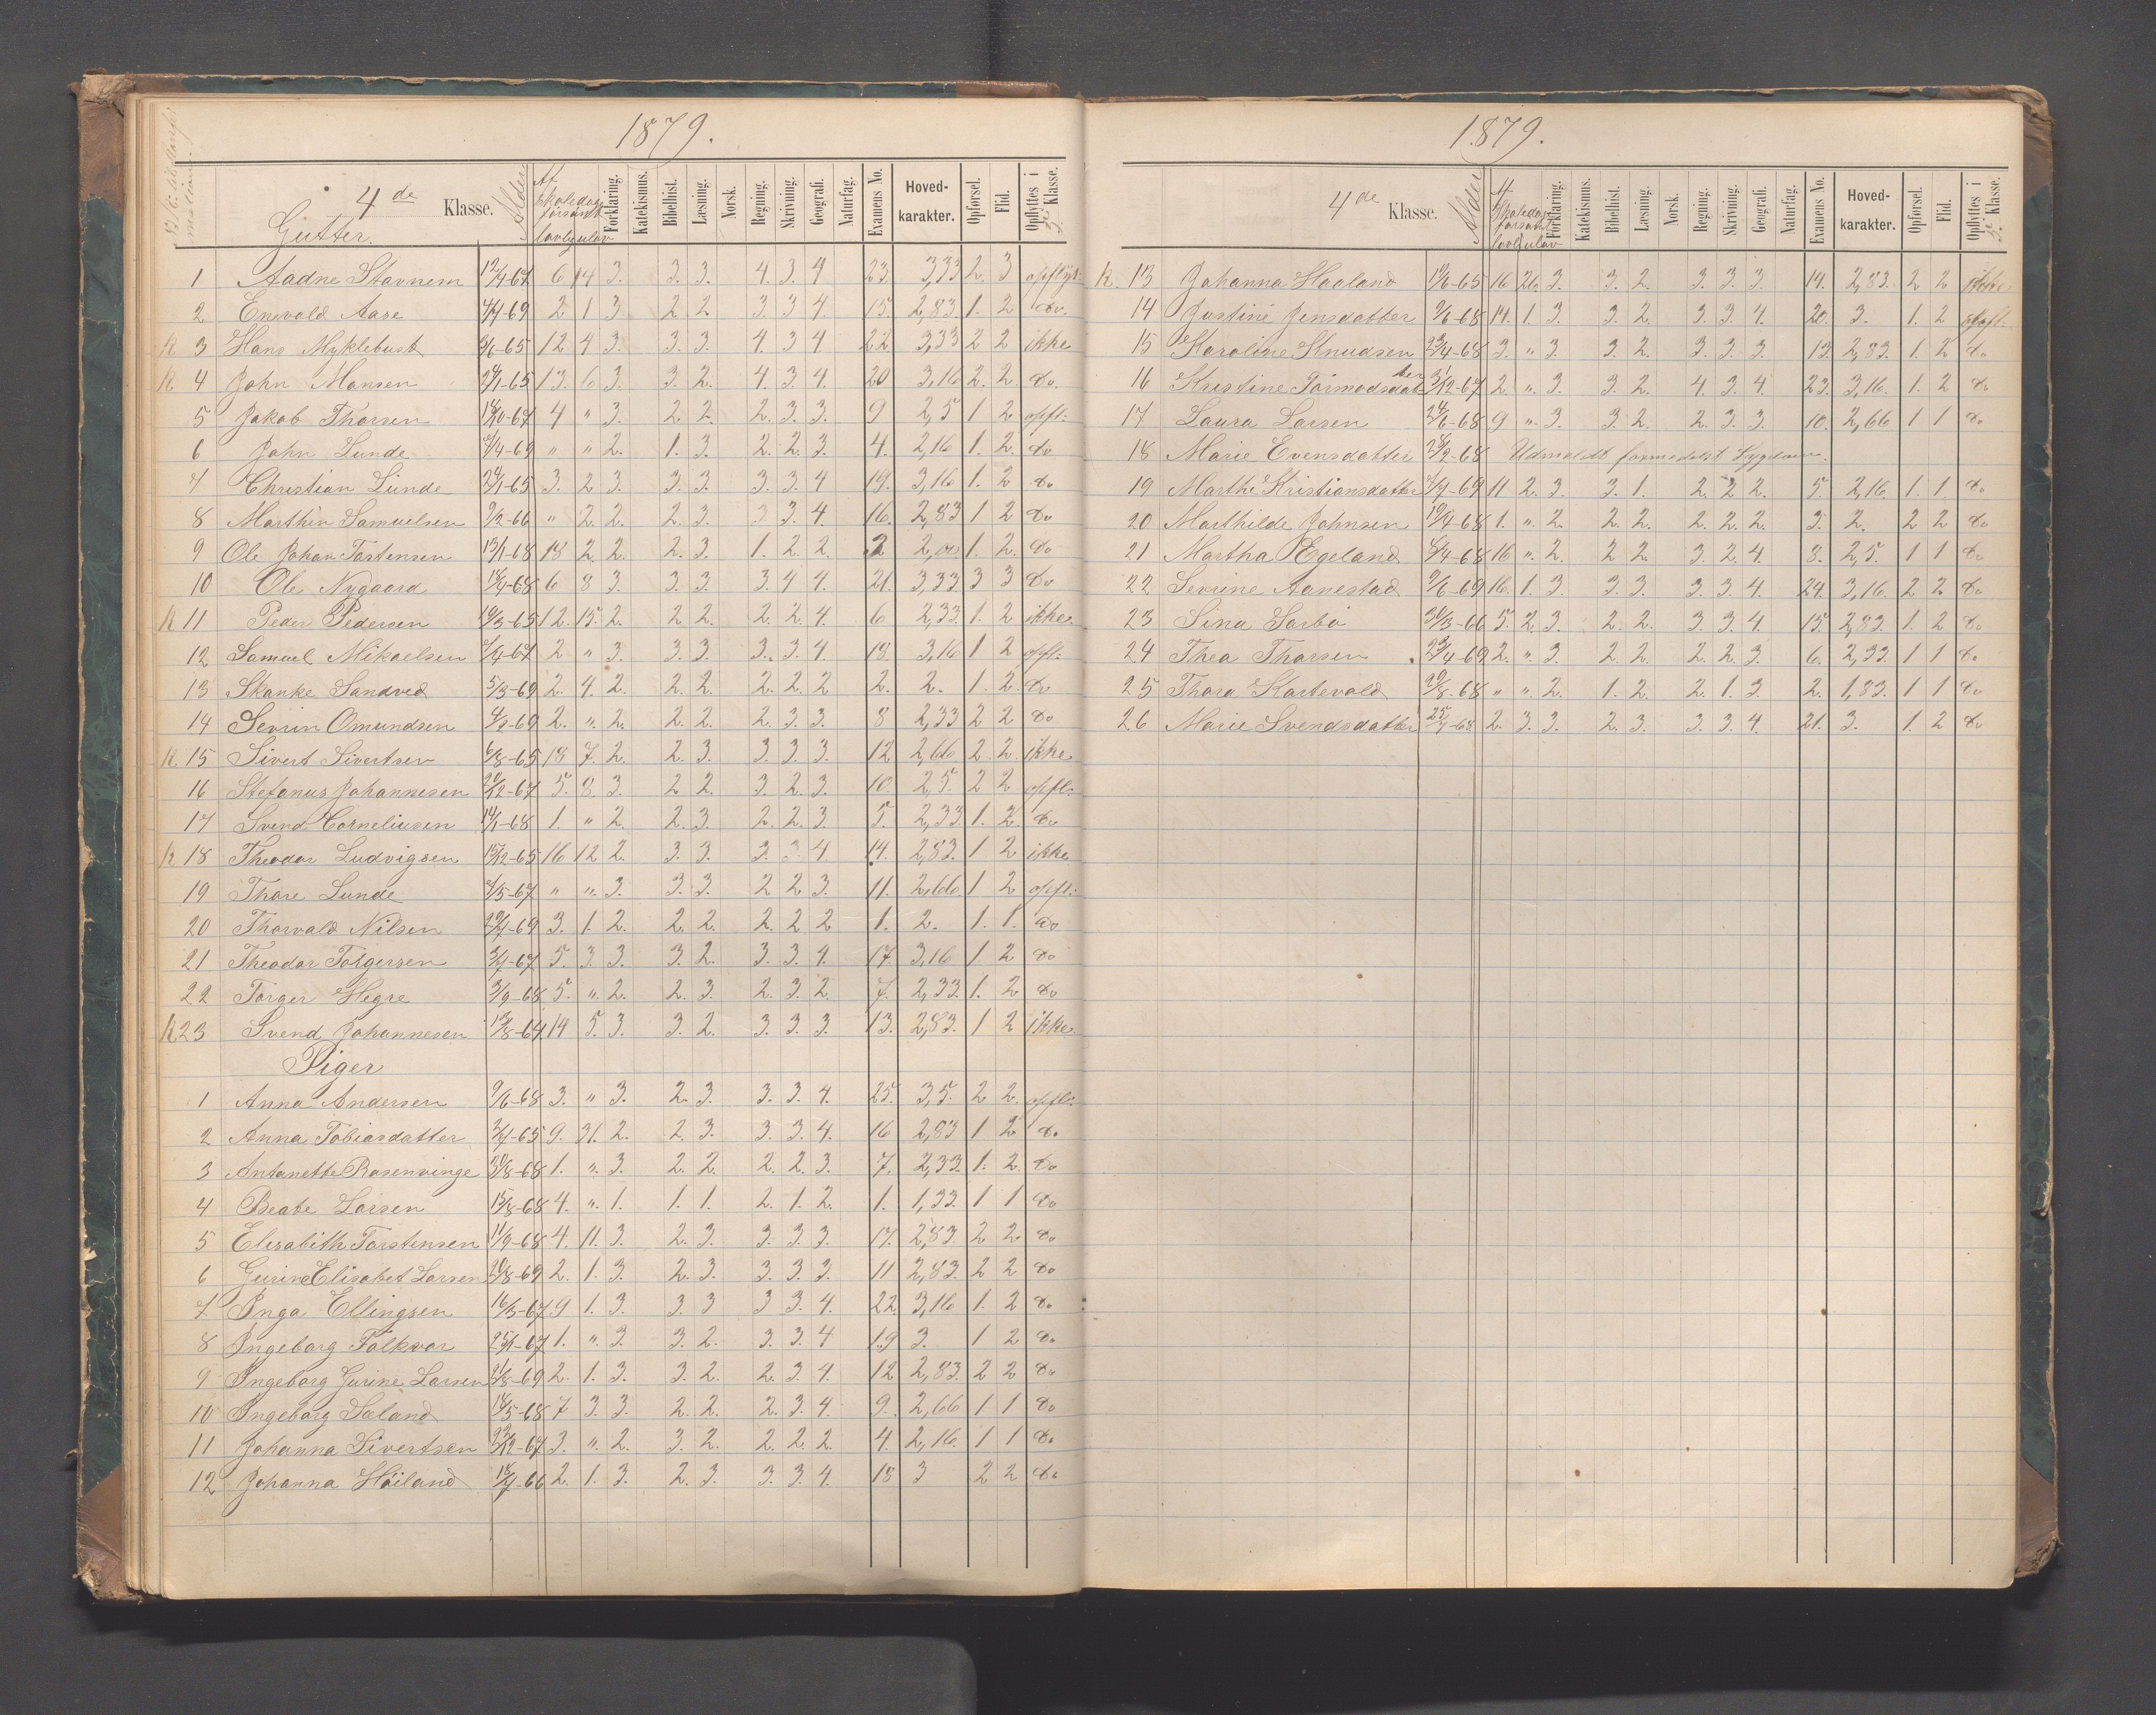 1879.
4de Klasse. Alder Af Skoledage forsømt lovl. ulov. Forklaring. Katekismus. Bibelhist. Læsning. Norsk. Regning. Skrivning. Geografi. Naturfag. Examens No. Hoved-karakter. Opførsel. Flid. Opflyttes i 3e Klasse.
Gutter.
1 Aadne Stavnem 6 14 3. 3. 3. 4. 3. 4 23. 3,33 2. 3 opflyt.
2 Enevald Aase 2 1 3 2 2 3 3 4. 15. 2,83. 1. 2 do.
K 3 Hans Myklebust 12 4 3. 3. 3. 4. 3 4 22 3,33 2 2 ikke
K 4 John Monsen 13. 6 3. 3. 2. 4. 3. 4. 20 3,16 2. 2. do.
5 Jakob Thorsen 4 " 3. 2. 2. 2. 3. 3. 9 2,5 1 2 opfl.
6 John Lunde " " 2. 1. 3. 2. 2. 3. 4. 2,16 1. 2. do
7 Christian Lunde 3. 2 3. 3. 3. 3. 3. 4 19. 3,16 1. 2 do
8 Marthin Samuelsen 9/2-66 " 2. 2. 2. 3. 3 3. 4. 16. 2,83 1 2 do
9 Ole Johan Tostensen 13/1-68 18 2. 2. 2. 3. 1. 2. 2. 2 2,00 1. 2. do
10 Ole Nygaard 6 8 3. 3. 3. 3. 4 4. 21. 3,33 3 3 do
K 11 Peder Pedersen 12. 15. 2. 2 2. 2. 2. 4. 6 2,33. 1. 2 ikke
12 Samuel Mikaelsen 2 " 3. 3. 3. 3. 3. 4 18. 3,16 1 2 opfl.
13 Skanke Sandved 5/3-69 2. 4. 2. 2. 2. 2. 2. 2 2. 2. 1. 2. do
14 Sevrin Omundsen 2. " 2. 2. 2. 2. 3. 3. 8 2,33 2 2 do
K 15 Sivert Sivertsen 6/8-65 18 7. 2. 2. 3. 3. 3. 3. 12 2,66 2. 2. ikke
16 Stefanus Johannesen 20/12-67 5. 8. 3. 2 2. 3. 2. 3. 10. 2,5. 2 2 opfl.
17 Svend Corneliusen 14/1-68 1. " 2. 2. 3. 2. 2. 3. 5. 2,33. 1. 2. do
K 18 Theodor Ludvigsen 15/12-65 16 12 2. 3. 3. 3. 3. 4 14. 2,83. 1 2 ikke
19 Thore Lunde " " 3. 3. 3. 2 2 3. 11. 2,66 1 2 opfl.
20 Thorvald Nilsen 3. 1. 2. 2. 2. 2. 2. 2 1. 2. 1. 1. do
21 Theodor Torgersen 5. 3. 3. 3. 2. 3. 3. 4. 17. 3,16 1 2 do
22 Torger Hegre 3/9-68 5. " 2. 2. 3. 2. 3. 2. 7. 2,33. 1. 2 do
K 23 Svend Johannesen 14 5. 3. 3. 2. 3. 3. 3. 13. 2,83. 1 2 ikke
Piger
1 Anna Andersen 9/6-68 3. " 3. 2. 3. 3. 3. 4. 25. 3,5. 2 2. opfl.
2 Anna Tobiasdatter 9. 31. 2. 2. 3. 3. 3. 4. 16 2,83 1 2 do
3 Antonette Rosenvinge 1. " 3. 2. 2. 2. 2. 3. 7. 2,33. 1. 2. do
4 Beate Larsen 15/8-68 4. " 1. 1. 1. 2. 1. 2. 1. 1,33. 1 1 do
5 Elisabeth Torstensen 11/9-68 4. 11. 3. 2. 3. 3. 3. 3. 17. 2,83 2 2 do
6 Gurina Elisabet Larsen 2. 1. 3. 2. 3. 3. 3. 3. 11 2,83. 2 2 do
7 Inga Ellingsen 16/3-67 9 1. 3. 3. 3 3 3. 4. 22. 3,16 1. 2 do
8 Ingeborg Falkvor 1. " 3. 3. 2. 3. 3. 4 19 3. 1 2 do
9 Ingeborg Gurine Larsen 2. 1. 3. 3. 2. 2. 3. 4. 12 2,83. 2 2 do
10 Ingeborg Sæland 7 3. 3. 2. 2. 2. 3. 4. 9. 2,66 1 1 do
11 Johanna Sivertsen 3. " 2. 3. 2. 2. 2. 2. 4. 2,16. 1 1 do
12 Johanna Høiland 2. 1. 3. 2. 3. 3. 3. 4. 18 3 2 2 do
1879.
4de Klasse. Alder Af Skoledage forsømt lovl. ulov. Forklaring. Katekismus. Bibelhist. Læsning. Norsk. Regning. Skrivning. Geografi. Naturfag. Examens No. Hoved-karakter. Opførsel. Flid. Opflyttes i 3e Klasse.
K. 13 Johanna Haaland 16 26. 3. 3. 2. 3. 3. 3. 14. 2,83. 2 2 ikke
14 Justine Jensdatter 9/6-68 14. 1. 3. 3. 2. 3. 3. 4. 20. 3. 1. 2 opfl.
15 Karoline Knudsen 23/4-68 3. " 3. 3. 2. 3. 3. 3. 13. 2,83. 1. 2 do
16 Kristine Tormodsdatter 2. " 3. 3. 2. 4. 3. 4 23. 3,16. 1. 2 do
17 Laura Larsen 24/6-68 9 " 3. 3. 2. 2. 3. 3. 10. 2,66 1 1 do
18 Marie Evensdatter Udmeldt formedelst Sygdom.
19 Marthe Kristiansdatter 11 2. 3. 3. 1. 2. 2 2. 5. 2,16. 1. 1. do
20 Marthilde Johnsen 1. " 2. 2. 2. 2. 2. 2. 3. 2. 2 2 do
21 Martha Egeland 16 " 2. 2 2. 3. 2. 4. 8. 2,5. 1 1 do
22 Sevrine Aanestad 9/6-69 16. 1. 3. 3. 3. 3. 3. 4. 24. 3,16. 2 2 do
23 Sina Sørbø 5. 2. 3. 2. 2. 3. 3. 4. 15. 2,83. 1. 2 do
24 Thea Thorsen 23/4-69 2. " 3. 2 2. 2. 2. 3. 6. 2,33. 1 1 do
25 Thora Kartevold 20/8-68 " " 2. 1. 2. 2. 1. 3. 2. 1,83. 1 1 do
26 Marie Svendsdatter 2. 3. 3. 2. 3. 3. 3. 4. 21. 3. 1. 2 do